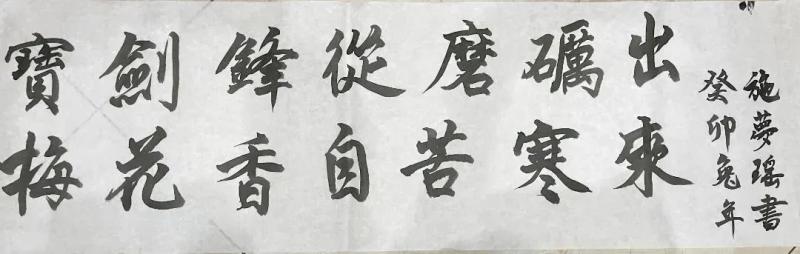 寶劍鋒從磨礪出
梅花香自苦寒來
癸卯兔年
施夢瑶書